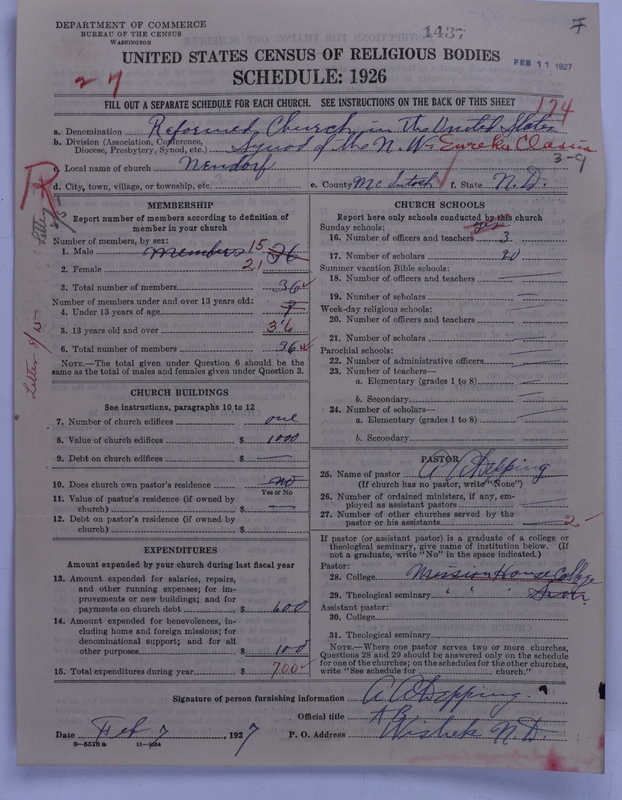 DEPARTMENT OF COMMERCE
BUREAU OF THE CENSUS
WASHINGTON
1437
7
FEB 11 1927
UNITED STATES CENSUS OF RELIGIOUS BODIES
SCHEDULE: 1926
2-7
FILL OUT A SEPARATE SCHEDULE FOR EACH CHURCH. SEE INSTRUCTIONS ON THE BACK OF THIS SHEET
174
a. Denomination Reformed Church in the United States
b. Division (Association, Conference, Diocese, Presbytery, Synod, etc.) Synod of the N.W. Eureka Classis
3-9
c. Local name of church Neudorf
d. City, town, village, or township, etc. e. County McIntosh f. State N.D.
MEMBERSHIP
Report number of members according to definition of member in your church
Number of members, by sex:
1. Male members 15 36
2. Female 21
3. Total number of members 36
Number of members under and over 13 years old:
4. Under 13 years of age
5. 13 years old and over 36
6. Total number of members 36
NOTE.—The total given under Question 6 should be the same as the total of males and females given under Question 3.
CHURCH BUILDINGS
See instructions, paragraphs 10 to 12
7. Number of church edifices one
8. Value of church edifices $ 1000
9. Debt on church edifices $ —
10. Does church own pastor's residence no
Yes or No
11. Value of pastor's residence (if owned by church) $ —
12. Debt on pastor's residence (if owned by church) $
EXPENDITURES
Amount expended by your church during last fiscal year
13. Amount expended for salaries, repairs, and other running expenses; for improvements or new buildings; and for payments on church debt $ 600
14. Amount expended for benevolences, including home and foreign missions; for denominational support; and for all other purposes $ 100
15. Total expenditures during year $ 700
CHURCH SCHOOLS
Report here only schools conducted by this church
Sunday schools: yes
16. Number of officers and teachers 3
17. Number of scholars 20
Summer vacation Bible schools:
18. Number of officers and teachers —
19. Number of scholars —
Week-day religious schools:
20. Number of officers and teachers —
21. Number of scholars —
Parochial schools:
22. Number of administrative officers —
23. Number of teachers—
a. Elementary (grades 1 to 8) —
b. Secondary —
24. Number of scholars—
a. Elementary (grades 1 to 8) —
b. Secondary —
PASTOR
25. Name of pastor A. A. Depping
(If church has no pastor, write "None")
26. Number of ordained ministers, if any, employed as assistant pastors —
27. Number of other churches served by the pastor or his assistants 2
If pastor (or assistant pastor) is a graduate of a college or theological seminary, give name of institution below. (If not a graduate, write "No" in the space indicated.)
Pastor:
28. College Mission House College
29. Theological seminary " " " Sem.
Assistant pastor:
30. College
31. Theological seminary
NOTE.—Where one pastor serves two or more churches, Questions 28 and 29 should be answered only on the schedule for one of the churches; on the schedules for the other churches, write "See schedule for church."
Signature of person furnishing information A. A. Depping
Official title
Date Feb 7, 1927 P. O. Address Wishek N.D.
8—5518a 11—9284